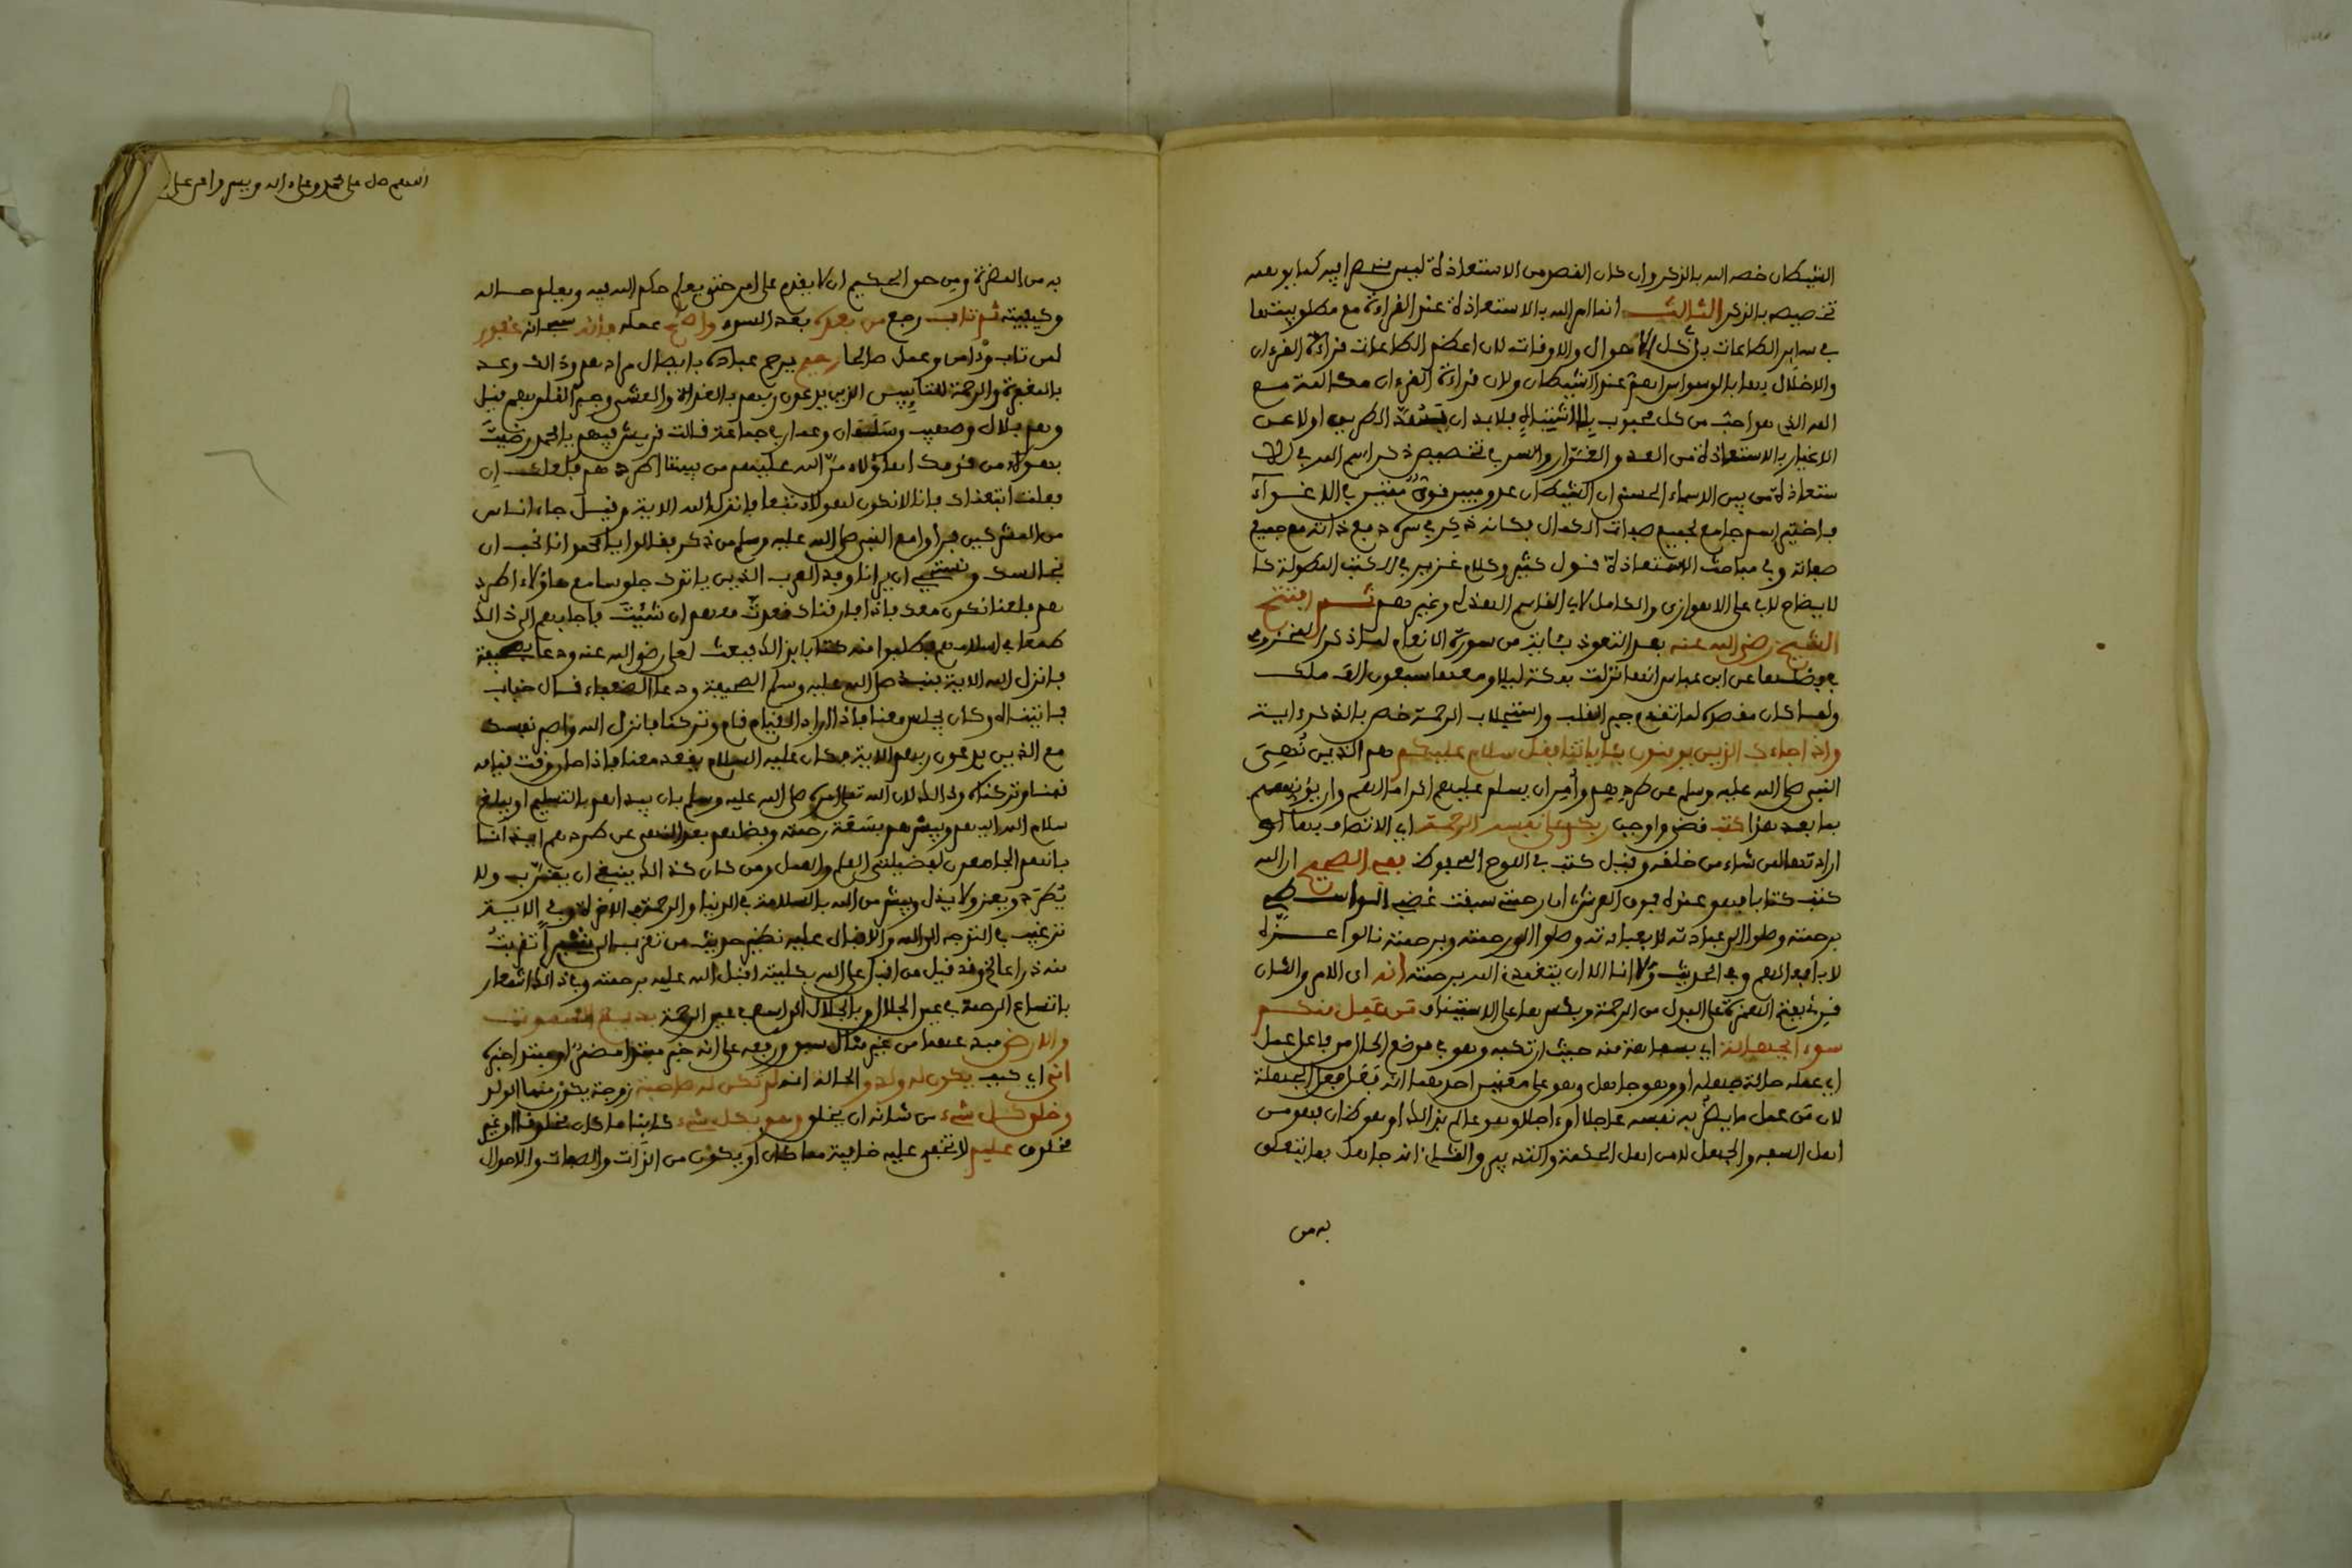 الشيطان خصه الله بالذكر وان كان الغرض من الاستعاذة ليس منحصرا فيه كما يوهمه
تخصيصه بالذكر الثالث انما امر الله بالاستعاذة عند القراءة مع مطلوبيتها
في سائر الطاعات بل في كل الاحوال والاوقات لان اعظم الطاعات قراءة القرءان
والاخلال بها بالوسواس اهم عند الشيطان ولان قراءة القرءان مكالمة مع
الله الذي هو احب من كل محبوب فلا بد ان اولا عن
الاغيار بالاستعاذة من العدو الغرار والسر في تخصيص ذكر اسم الله في الا
ستعاذة من بين الاسماء الحسنى ان الشيطان عدو مبين قوي في الاغواء
فاختير اسم جامع لجميع صفات الكمال فكانه ذكر في دفع ذاته مع جميع
صفاته وفي مباحث الاستعاذة قول كثير وكلام غزير في الكتب المطولة كا
لايضاح لابي علي الاهوازي والكامل لابي القاسم الهذلي وغيرهم ثم افتتح
الشيخ رضي الله عنه بعد التعوذ بئاية من سورة الانعام لما ذكر
في فضلها عن ابن عباس انها نزلت بمكة ليلا ومعها سبعون الف ملك
ولما كان مقصوده لما تقدم جبر القلب واستجلاب الرحمة خص بالذكر ءاية
واذا جاءك الذين يومنون بئاياتنا فقل سلام عليكم هم الذين نهي
النبي صلى الله عليه وسلم عن طردهم وأمر ان يسلم عليهم اكراما لهم وان يؤنسهم
بما بعد هذا كتب فرض واوجب ربكم على نفسه الرحمة اي الاتصاف بها او
ارادتها لمن شاء من خلقه وقيل كتب في اللوح المحفوظ ففي الصحيح ان الله
كتب كتابا فهو عنده فوق العرش ان رحمتي سبقت غضبي
برحمته وصلوا الى عبادته لا بعبادته وصلوا الى رحمته وبرحمته نالوا
لا بافعالهم وفي الحديث ولا انا الا ان يتغمدني الله برحمته انه اي الامر والشان
قرئ بفتح الهمزة على البدل من الرحمة وبكسرها على الاستيناف من عمل منكم
سوءا بجهالة اي بسفاهة منه حيث ارتكبه وهو في موضع الحال من فاعل عمل
اي عمله حالة جهله او وهو جاهل وهو على معنيين احدهما انه فعل فعل الجهلة
لان من عمل ما يضر به نفسه عاجلا او ءاجلا وهو عالم بذالك او ظان فهو من
اهل السفه والجهل لا من اهل الحكمة والتدبير والثاني انه جاهل بما يتعلق
به من
اللهم صل على محمد وعلى ءاله
به من المضرة ومن حق الحكيم ان لا يقدم على امر حتى يعلم حكم الله فيه ويعلم حاله
وكيفيته ثم تاب رجع من بعده بعد السوء واصلح عمله فانه سبحانه غفور
لمن تاب وءامن وعمل صالحا رحيم يرحم عباده بايصال مرادهم وذالك وعد
بالمغفرة والرحمة للتائبين الذين يدعون ربهم بالغداة والعشي وجبر لقلوبهم قيل
وهم بلال وصهيب وسلمان وعمار في جماعة قالت قريش فيهم يا محمد رضيت
بهؤلاء من قومك اهؤلاء منّ الله عليهم من بيننا اطردهم فلعلك ان
فعلت اتبعناك فانا لا نكون لهؤلاء تبعا فانزل الله الاية وقيل جاء اناس
من المشركين فراوا مع النبي صلى الله عليه وسلم من ذكر فقالوا يا محمد انا نحب ان
نجالسك ونستحيي ان يرانا وفد العرب الذين ياتوك جلوسا مع هاؤلاء اطرد
هم فلعنا نكون معك فاذا فارقناك فعدت معهم ان شئت فاجابهم الى ذالك
طمعا في اسلامهم فطلبوا منه كتابا بذالك فبعث لعلي رضي الله عنه ودعا بصحيفة
فانزل الله الاية فنبذ صلى الله عليه وسلم الصحيفة ودعا الضعفاء قال خباب
فاتيناه وكان يجلس معنا فاذا اراد القيام قام وتركنا فانزل الله واصبر نفسك
مع الذين يدعون ربهم الاية فكان عليه السلام يقعد معنا فاذا جاء وقت قيامه
قمنا وتركناه وذالك لان الله تعالى امره صلى الله عليه وسلم بان يبداهم بالتسليم او يبلغ
سلام الله اليهم ويبشرهم بسعة رحمته وفضلهم بعد النهي عن طردهم ايذانا
بانهم الجامعون لفضيلتي العلم والعمل ومن كان كذالك ينبغي ان يقرب ولا
يطرد ويعز ولا يذل ويبشر من الله بالسلامة في الدنيا والرحمة في الاخرة وفي الاية
ترغيب في التوجه الى الله والاقبال عليه نظير حديث من تقرب الي شبرا تقربت
منه ذراعا الخ وقد قيل من اقبل على الله بكليته اقبل الله عليه برحمته وفي ذالك اشعار
باتساع الرحمة في عين الجلال وبالجلال في عين الرحمة بديع السموات
والارض مبدعهما من غير مثال سبق ورفعه على انه خبر مبتدا مضمر او مبتدا خبره
انى اي كيف يكون له ولد والحالة انه لم تكن له صاحبة زوجة يكون منها الولد
وخلق كل شيء من شانه ان يخلق وهو بكل شيء كائنا ما كان مخلوقا او غير
مخلوق عليم لا تخفى عليه خافية مما كان او يكون من الذات والصفات والاحوال